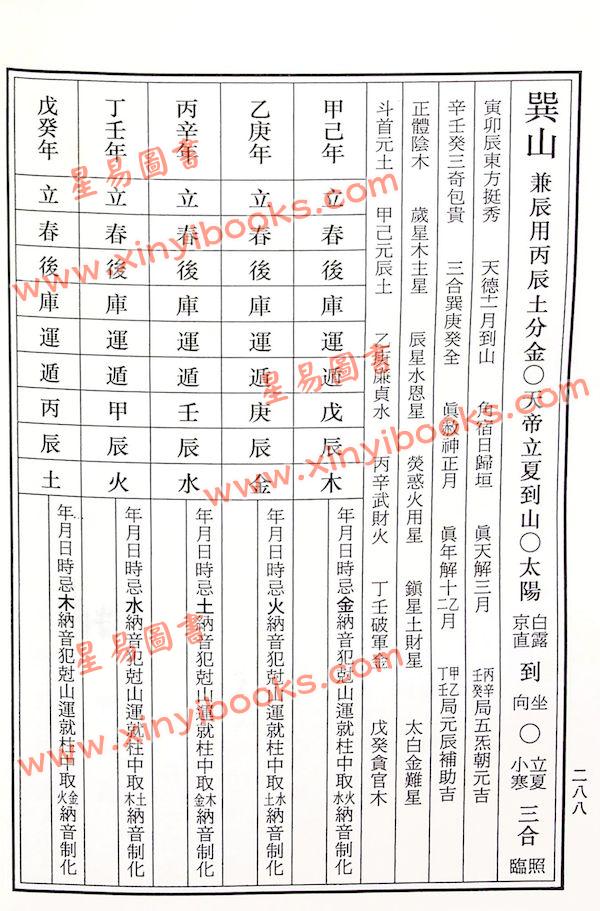 巽山 兼辰用丙辰土分金○天帝立夏到山○太陽 白露京直 到 坐向 ○ 立夏小寒 三合 照臨
寅卯辰東方挺秀 天德十二月到山 角宿日歸垣 眞天解三月 丙辛壬癸局五炁朝元吉
辛壬癸三奇包貴 三合巽庚癸全 眞赦神正月 眞年解十二乙月 甲乙丁壬局元辰補助吉
正體陰木 歲星木主星 辰星水恩星 熒惑火用星 鎮星土財星 太白金難星
斗首元土 甲己元辰土 乙庚廉貞水 丙辛武財火 丁壬破軍金 戊癸貪官木
甲己年 立春後庫運遁戊辰木 年月日時忌金納音犯尅山運就柱中取火水納音制化
乙庚年 立春後庫運遁庚辰金 年月日時忌火納音犯尅山運就柱中取水土納音制化
丙辛年 立春後庫運遁壬辰水 年月日時忌土納音犯尅山運就柱中取木金納音制化
丁壬年 立春後庫運遁甲辰火 年月日時忌水納音犯尅山運就柱中取土木納音制化
戊癸年 立春後庫運遁丙辰土 年月日時忌木納音犯尅山運就柱中取金火納音制化
二八八
星易圖書
www.xinyibooks.com
星易圖書
www.xinyibooks.com
星易圖書
www.xinyibooks.com